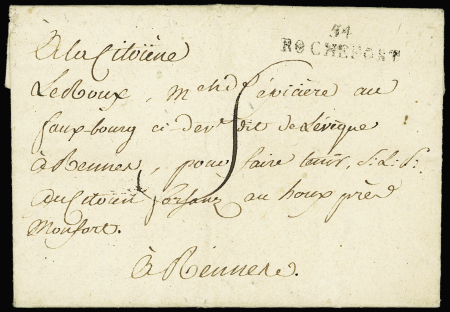 54
ROCHEFORT
A la Citoiëne
LeRoux, mchde épiciere au
faux bourg ci-devt dit de Lévêque
à Rennes, pour faire tenir, S.L.P.
au Citoien au houx près
Monfort.
à Rennes.
5